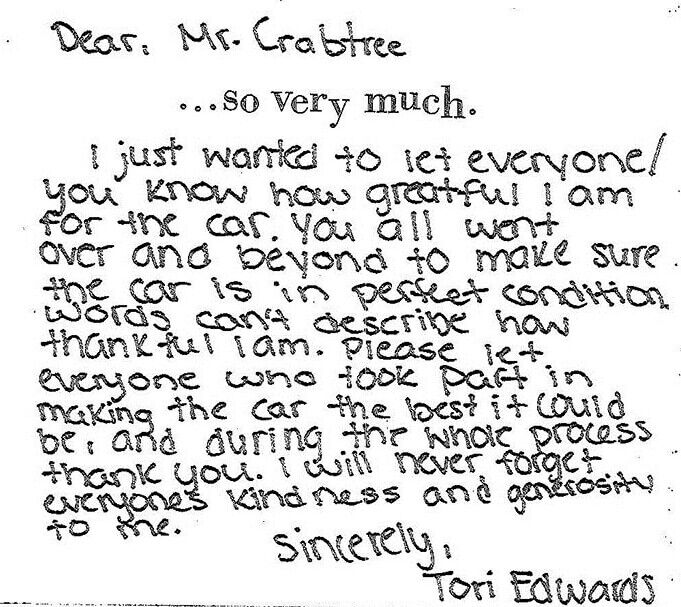 Dear, Mr. Crabtree
...so very much.
I just wanted to let everyone/
you know how greatful I am
for the car. You all went
over and beyond to make sure
the car is in perfect condition.
words can't describe how
thankful I am. Please let
everyone who took part in
making the car the best it could
be, and during the whole process
thank you. I will never forget
everyones kindness and generosity
to me.
Sincerely,
Tori Edwards